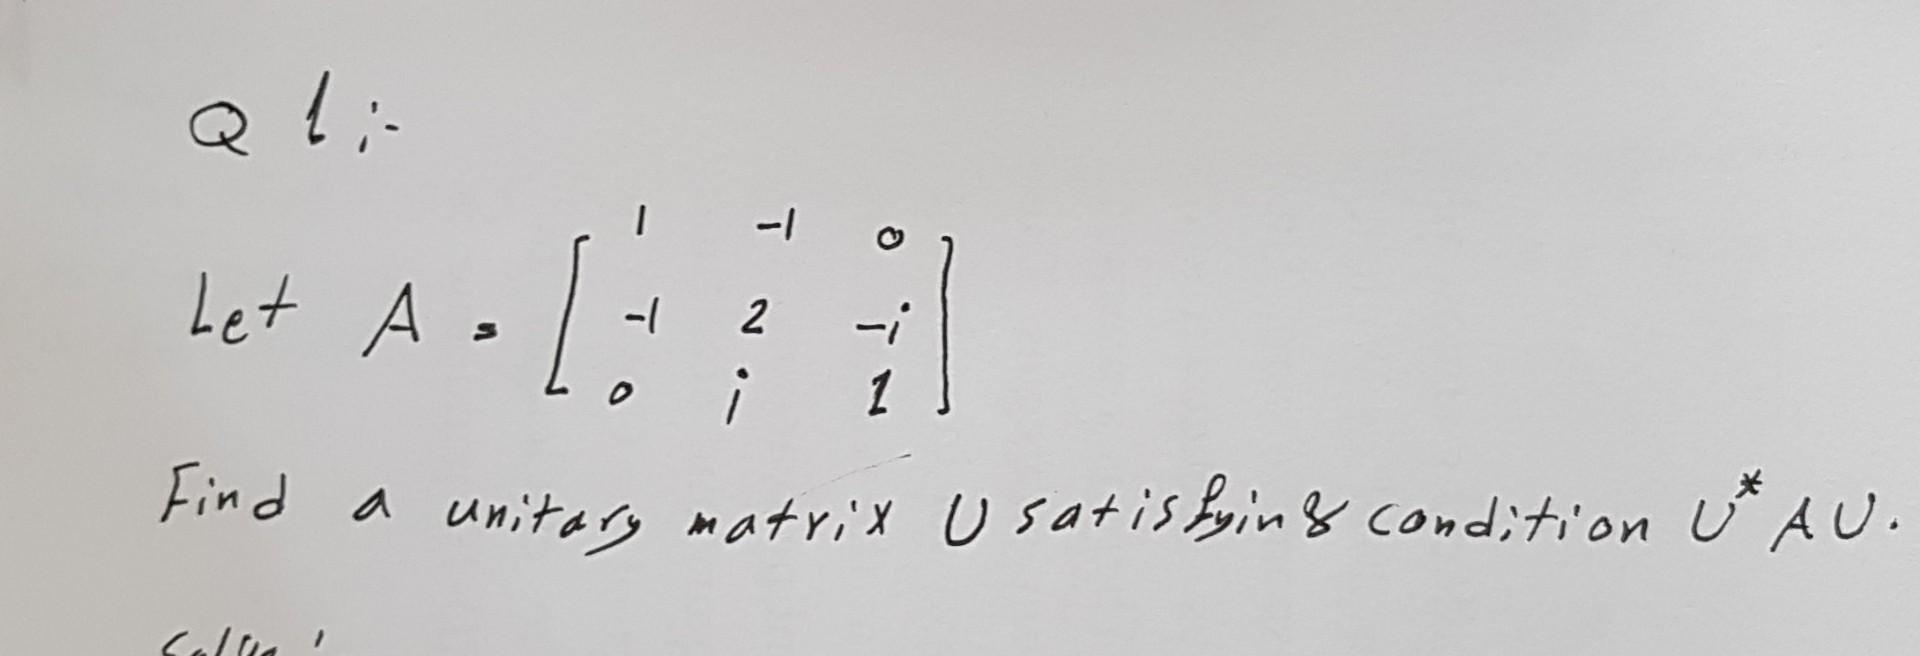 Q 1:-
1 -1 0
Let A = [ -1 2 -i ]
0 i 1
Find a unitary matrix U satisfying condition U* A U.